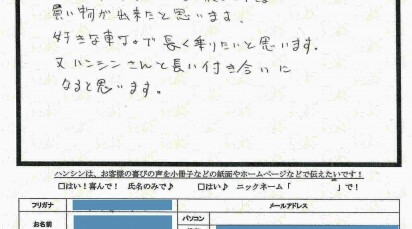 買い物が出来たと思います。
好きな車なので長く乗りたいと思います。
又ハンシンさんと長い付き合いに
なると思います。
ハンシンは、お客様の喜びの声を小冊子などの紙面やホームページなどで伝えたいです！
□はい！喜んで！ 氏名のみで♪ □はい♪ ニックネーム「 」で！
フリガナ メールアドレス
お名前 パソコン